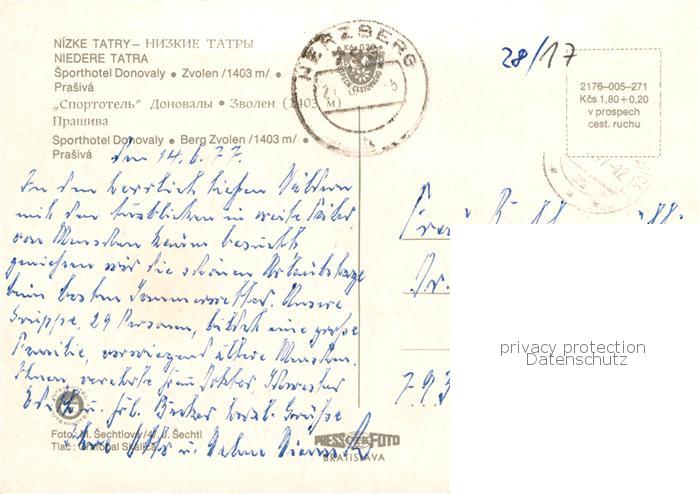 NÍZKE TATRY – НИЗКИЕ ТАТРЫ
NIEDERE TATRA
Športhotel Donovaly • Zvolen /1403 m/ •
Prašivá
„Спортотель" Доновалы • Зволен (1403 м)
Прашива
Sporthotel Donovaly • Berg Zvolen /1403 m/ •
Prašivá
HERZBERG
Kčs 0,20
28/17
2176–005–271
Kčs 1,80+0,20
v prospech
cest. ruchu
den 14.6.77.
In den herrlich tiefen Wäldern
mit den Ausblicken in weite Täler,
von Menschen kaum besucht
genießen wir die schönen Urlaubstage
beim besten Sommerwetter. Unsere
Gruppe, 29 Personen, bildet eine große
Familie, vorwiegend ältere Menschen.
Ihnen, verehrte Frau Doktor
u. Frl. Becker herzl. Grüße
Ihre u.
Frau
Dr.
793
Foto: M. Šechtlová/4/, J. Šechtl
Tlač: Grafobal Skalica
PRESSFOTO
BRATISLAVA
privacy protection
Datenschutz